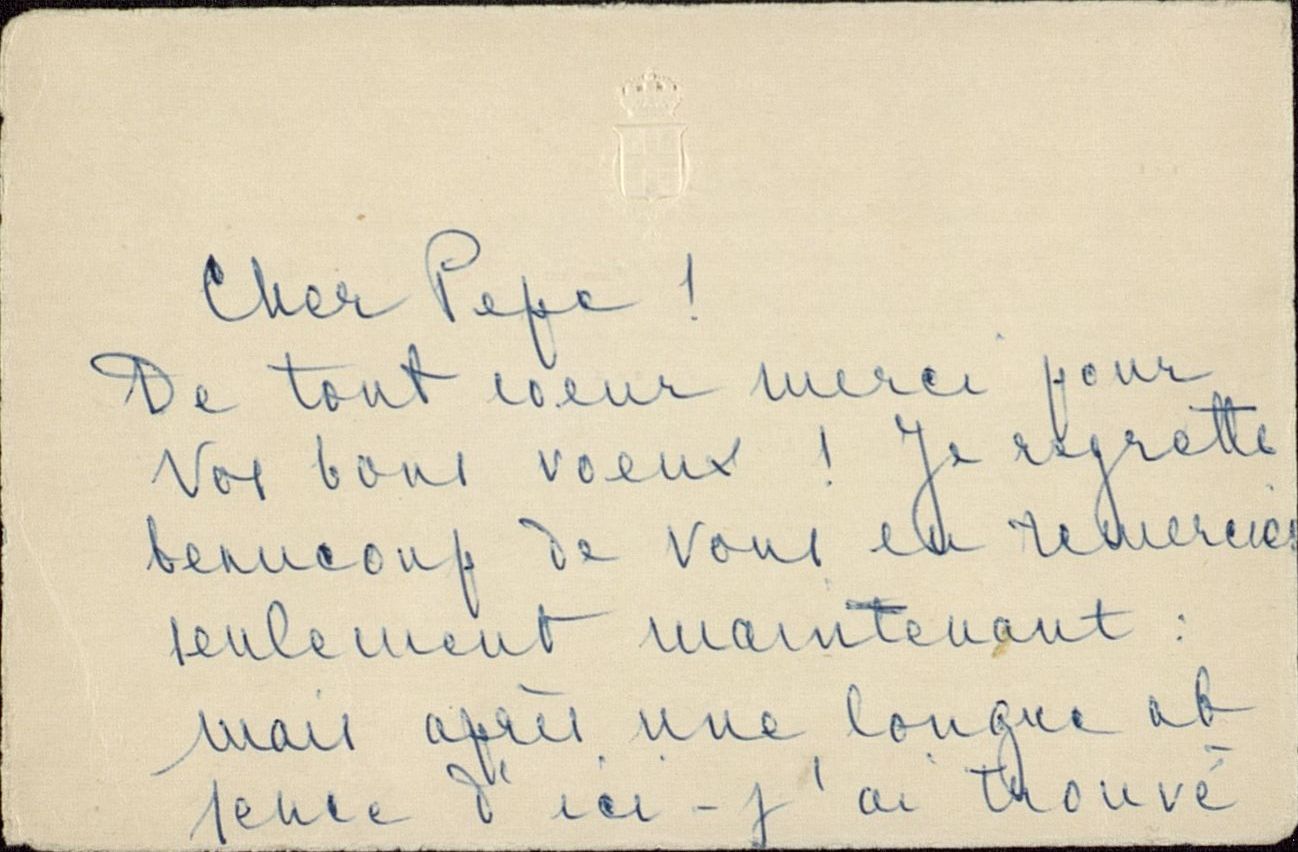 Cher Pepe !
De tout coeur merci pour
Vos bons voeux ! Je regrette
beaucoup de Vous en remercier
seulement maintenant :
mais après une longue ab
sence d'ici - j'ai trouvé